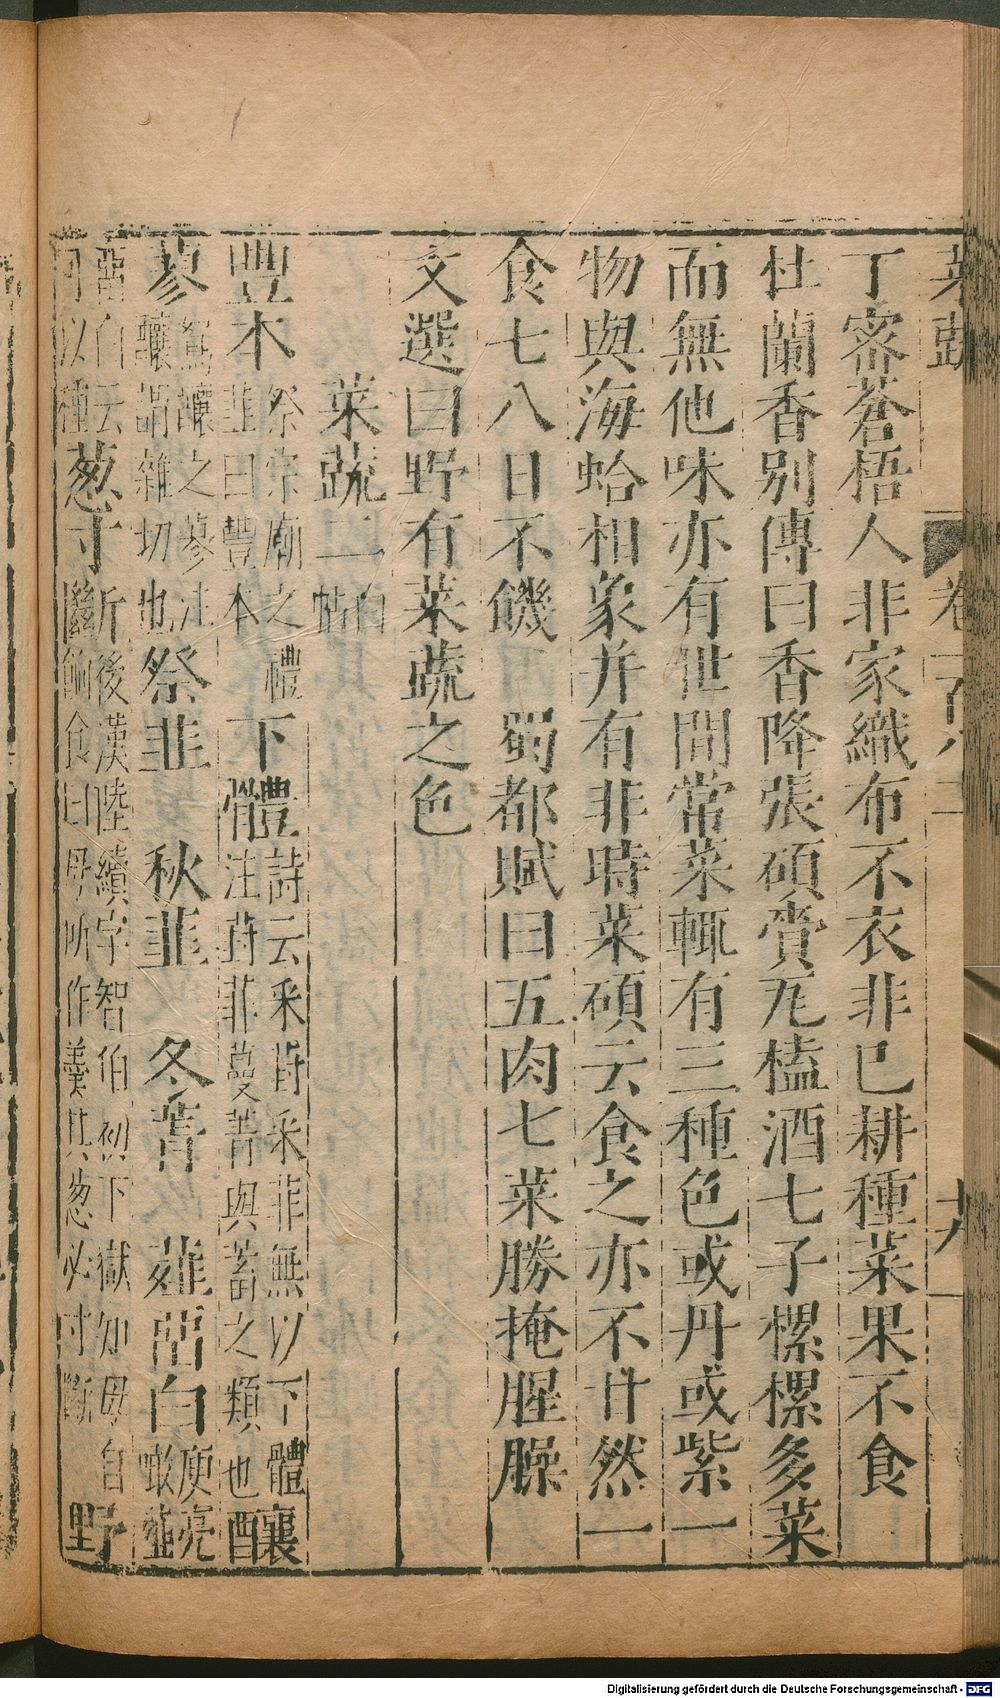 菜蔬 卷一百八十 十九
丁密蒼梧人非家織布不衣非己耕種菜果不食
杜蘭香別傳曰香降張碩賚瓦榼酒七子樏樏多菜
而無他味亦有世間常菜輒有三種色或丹或紫一
物與海蛤相象并有非時菜碩云食之亦不甘然一
食七八日不饑 蜀都賦曰五肉七菜朦掩腥臊
文選曰野有菜蔬之色
菜蔬二 白帖
豐本 祭宗廟之禮韭曰豐本 下體 詩云采葑采菲無以下體注葑菲蔓菁與葍之類也 醸
蓼 鴽釀之蓼注釀謂雜切也 祭韭 秋韭 冬菁 薤 白 庾亮噉薤
白云可以種 葱寸 斤後漢陸續字智伯初下獄如母自餉食曰母所作羹其葱必寸斷 野
Digitalisierung gefördert durch die Deutsche Forschungsgemeinschaft - DFG